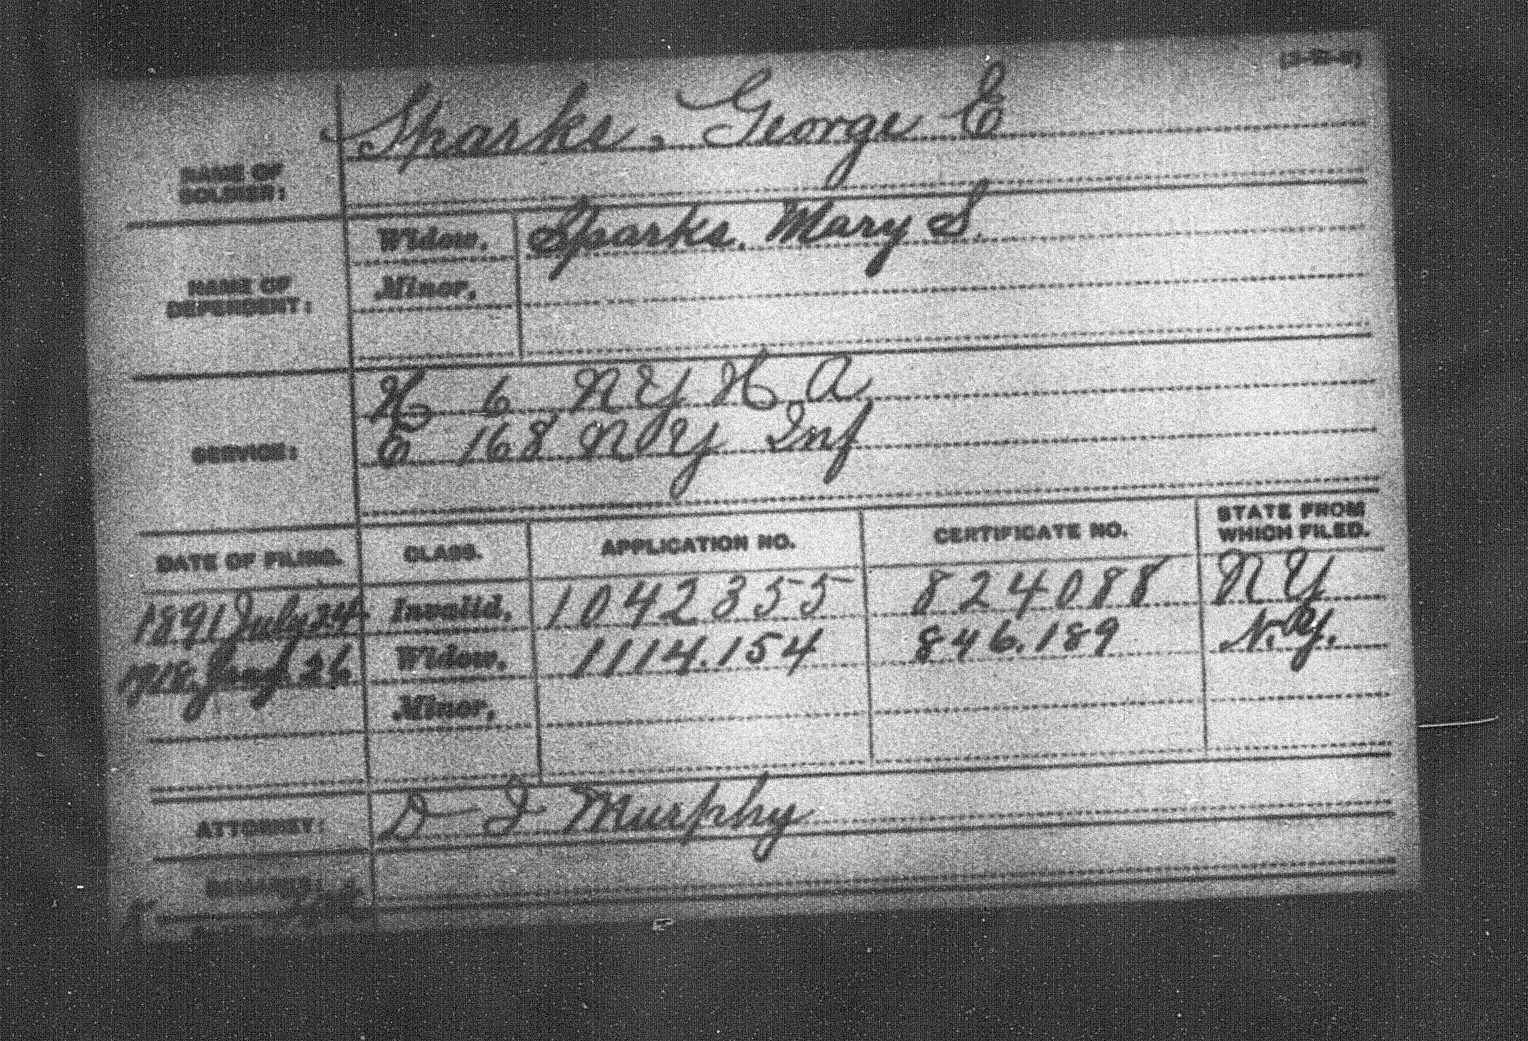 Sparks, George E
NAME OF
SOLDIER:
Widow, Sparks, Mary S.
Minor,
NAME OF
DEPENDENT:
H 6 N Y H A
E 168 N Y Inf
SERVICE:
DATE OF FILING. CLASS. APPLICATION NO. CERTIFICATE NO. STATE FROM
WHICH FILED.
1891 July 24 Invalid, 1042355 824088 N Y
1918, Jany. 26 Widow, 1114.154 846.189 N.Y.
Minor,
ATTORNEY: D I Murphy
REMARKS: